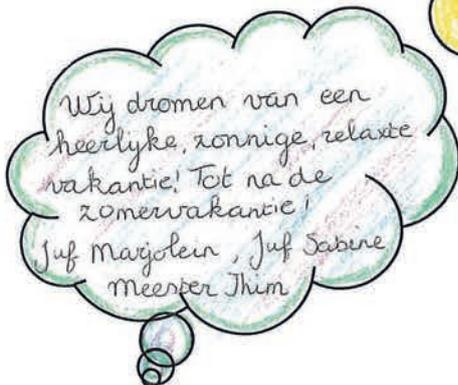 Wij dromen van een
heerlijke, zonnige, relaxte
vakantie! Tot na de
zomervakantie!
Juf Marjolein, Juf Sabine
Meester Thim